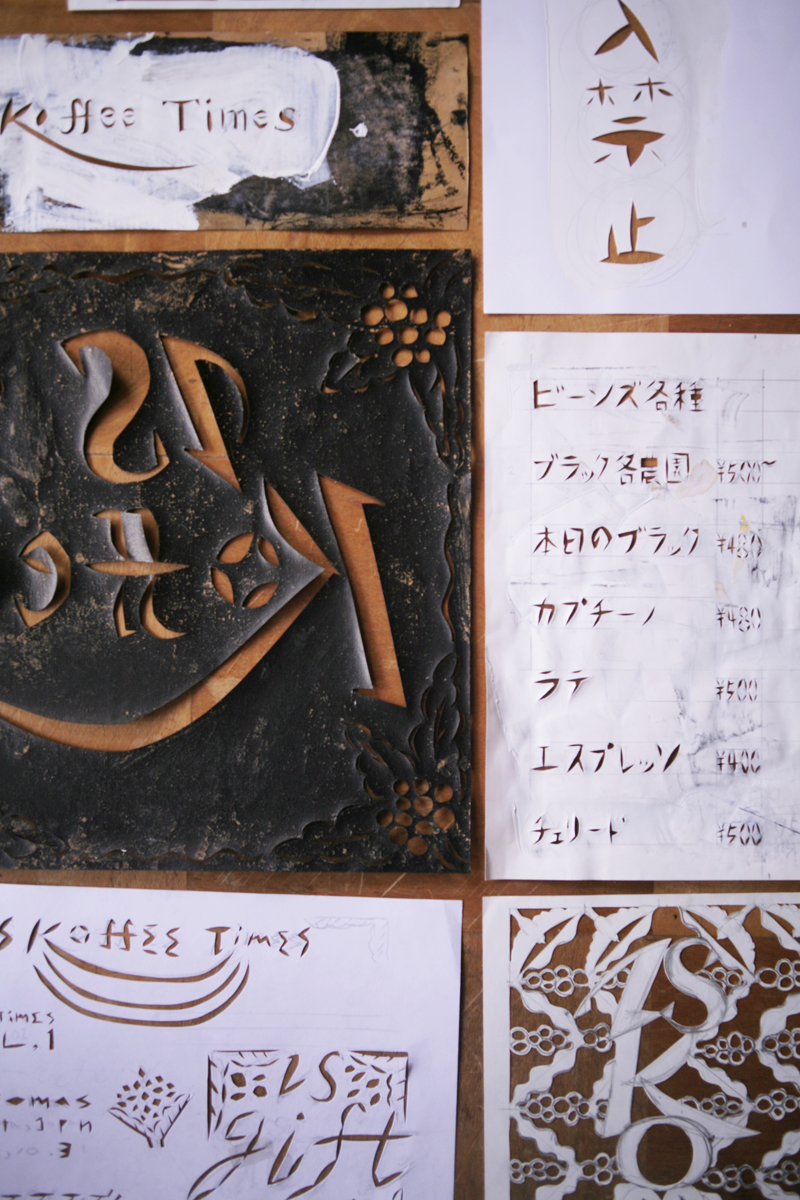 Koffee Times
入
禁
止
ビーンズ各種
ブラック各農園 ¥500~
本日のブラック ¥480
カプチーノ ¥480
ラテ ¥500
エスプレッソ ¥400
チェリード ¥500
IS
Koff
S Koffee Times
Times
L.1
IS
gift
IS
Ko